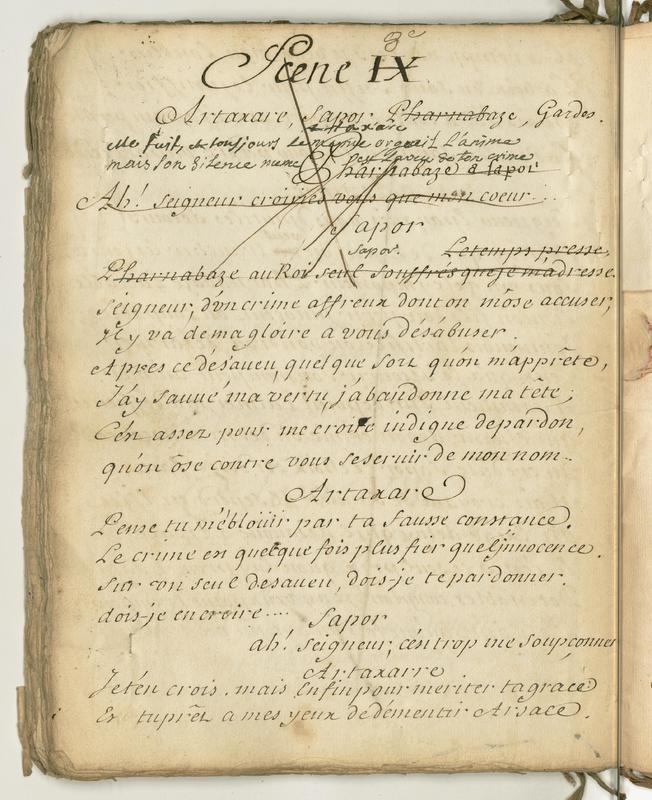 3e
Scene IX
Artaxare, Sapor Pharnabaze, Gardes.
Artaxare
elle fuit, et tousjours le mesme orgueil l'anime
mais son silence meme est un aveu de ton crime
Pharnabaze a Sapor
Ah! seigneur croiriés vous que mon coeur...
Sapor
Sapor. Le temps presse,
Pharnabaze au Roi seul souffrés que je m'adresse.
seigneur, d'vn crime affreux dont on m'ôse accuser,
Il y va de ma gloire a vous désabuser.
Apres ce désaveu, quelque sort qu'on m'apprête,
J'ay sauvé ma vertu, j'abandonne ma tête;
C'en assez pour me croire indigne de pardon,
qu'on ôse contre vous se servir de mon nom..
Artaxare
Pense tu m'éblouir par ta fausse constance.
Le crime en quelque fois plus fier que l'innocence.
sur vn seul désaveu, dois-je te pardonner.
dois-je en croire....
Sapor
ah! seigneur, c'en trop me soupçonner
Artaxarre.
Je t'en crois. mais Enfin pour meriter ta grace
Es tu prêt a mes yeux de démentir Arsace.